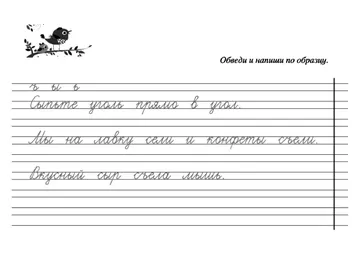 Обведи и напиши по образцу.
ъ ы ь
Сыпьте уголь прямо в угол.
Мы на лавку сели и конфеты съели.
Вкусный сыр съела мышь.